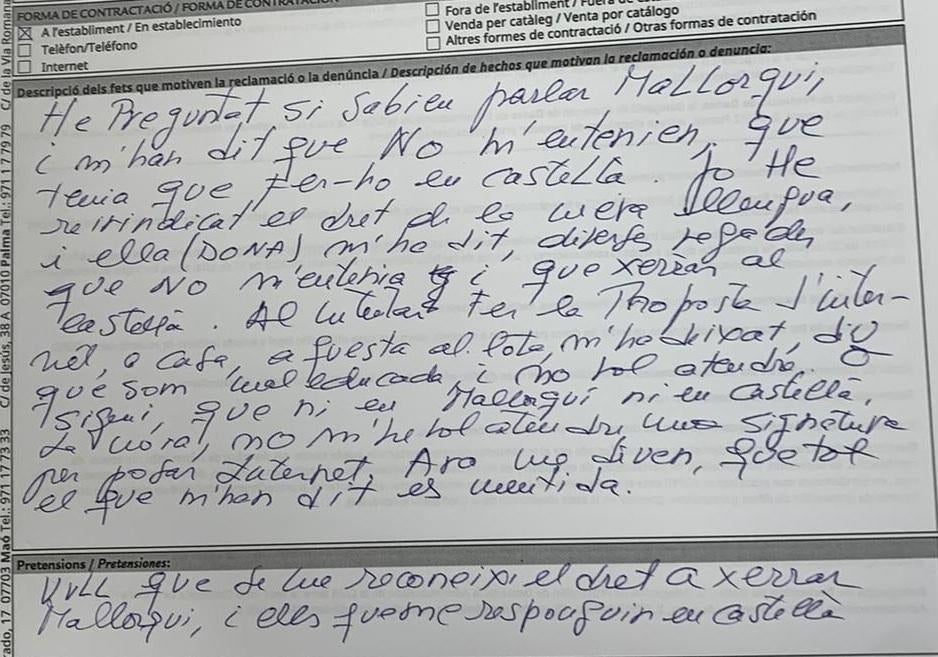 FORMA DE CONTRACTACIÓ / FORMA DE CONTRATACIÓN
A l'establiment / En establecimiento
Telèfon/Teléfono
Internet
Fora de l'establiment / Fuera de
Venda per catàleg / Venta por catálogo
Altres formes de contractació / Otras formas de contratación
Descripció dels fets que motiven la reclamació o la denúncia / Descripción de hechos que motivan la reclamación o denuncia:
He Preguntat si sabien parlar Mallorquí,
i m'han dit que No m'entenien, que
tenia que fer-ho en castellà. Jo He
reivindicat el dret de la meva llengua,
i ella (DONA) m'ha dit, diverses vegades
que No m'entenia i, que xerràs al
castellà. Al intentar fer la Proposta d'inter-
net, a casa, a m'ha deixat, diu
que som mal educada, i no vol atendre
ni en Mallorquí ni en Castellà.
no m'ha vol atendre una signatura
per posar Internet. Ara me diven, que tot
el que m'han dit es mentida.
Pretensions / Pretensiones:
Vull que se me reconeixi el dret a xerrar
Mallorqui, i elles que me responguin en castellà
C/ de la Via Romana
C/ de Jesús, 38 A 07010 Palma Tel.: 971 17 79 79
07703 Maó Tel.: 971 17 73 33